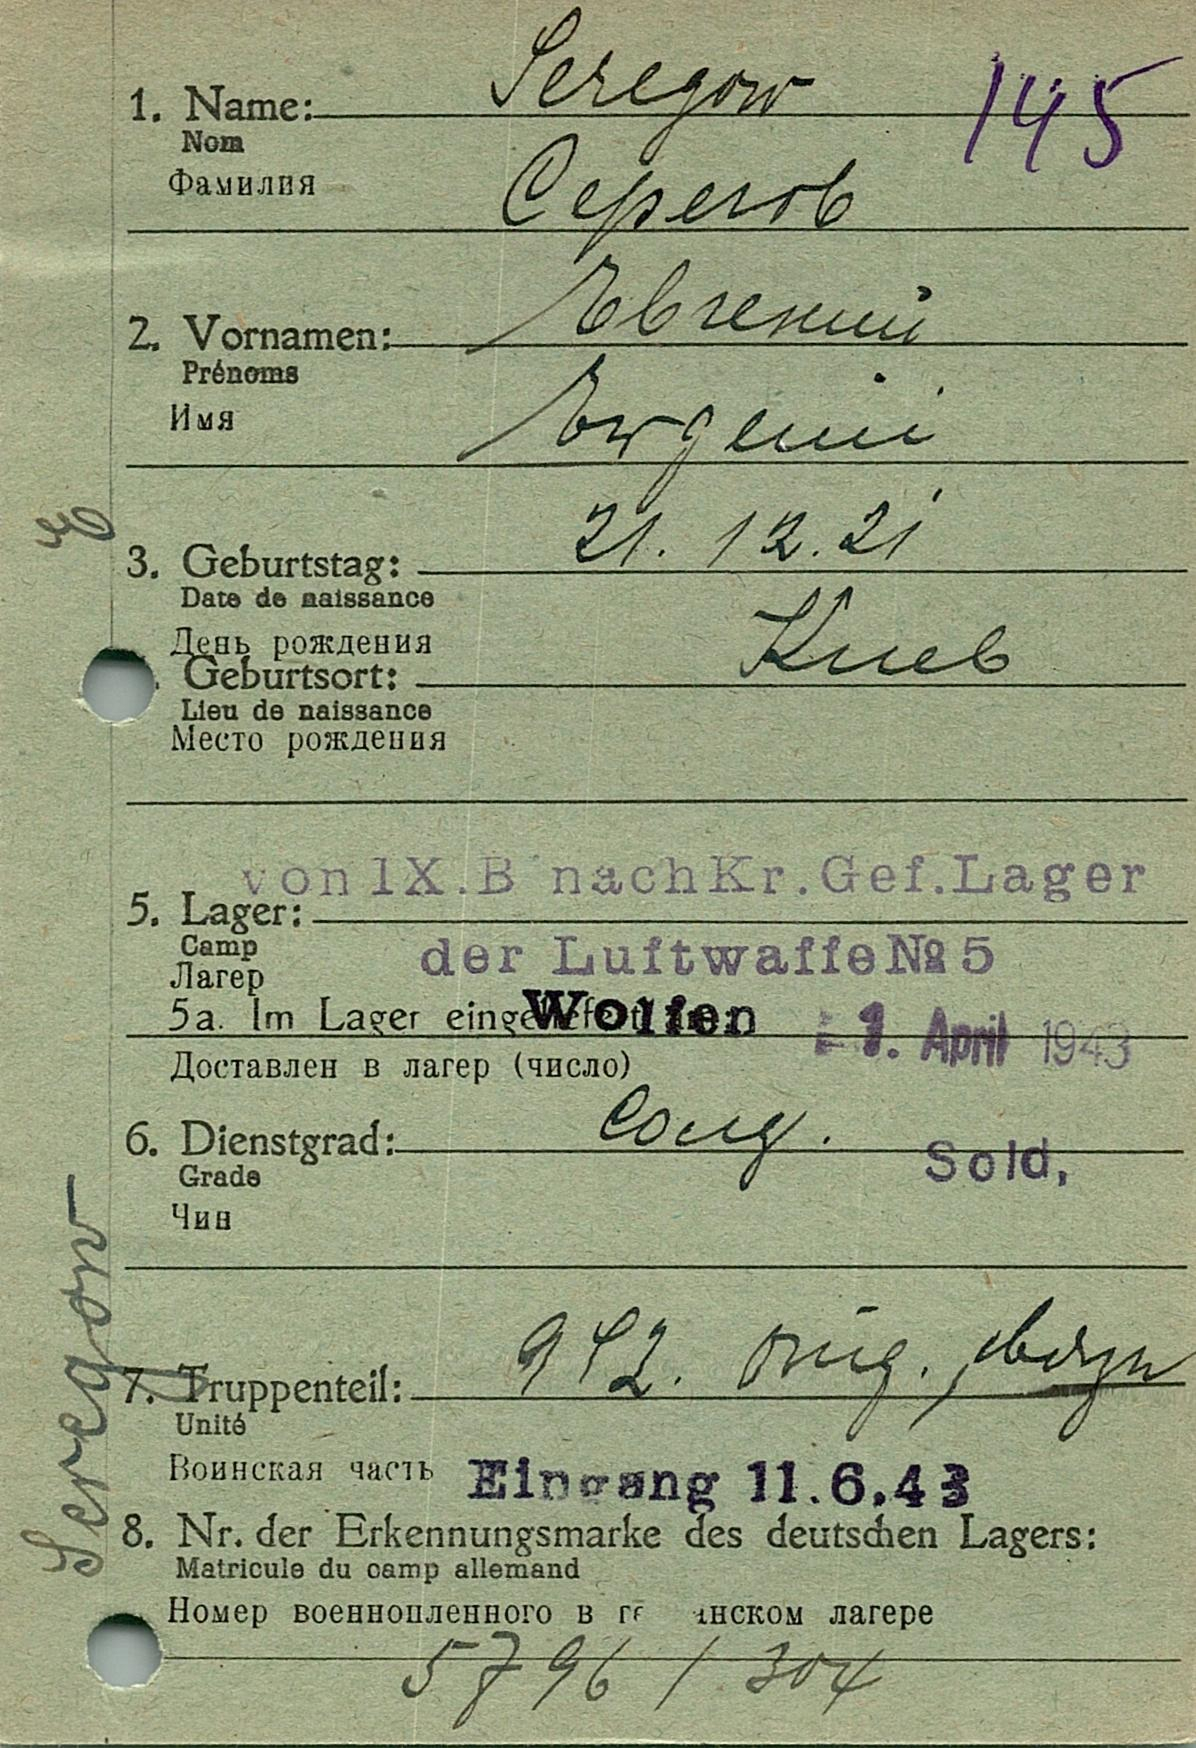 145
1. Name: Seregow
Nom
Фамилия Серегов
2. Vornamen: Евгений
Prénoms
Имя Ewgenii
E
3. Geburtstag: 21. 12. 21
Date de naissance
День рождения
Geburtsort: Киев
Lieu de naissance
Место рождения
von 1X.B nach Kr.Gef.Lager
5. Lager:
Camp der Luftwaffe № 5
Лагерь
5a. Im Lager eingeliefert Wolfen 1. April 1943
Доставлен в лагер (число)
6. Dienstgrad: Солд.
Grade Sold,
Чин
7. Truppenteil: 912.
Unité
Воинская часть Eingang 11.6.43
8. Nr. der Erkennungsmarke des deutschen Lagers:
Matricule du camp allemand
Номер военнопленного в лагере
5796 / 304
Seregow